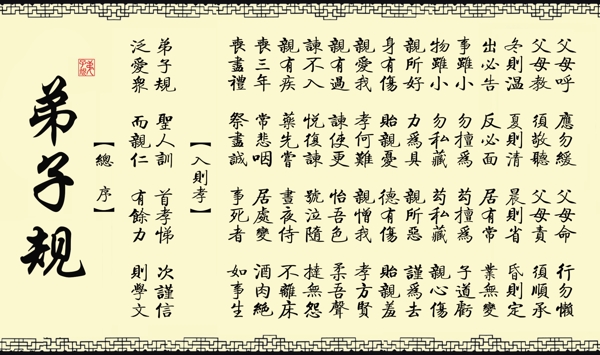 父母呼 應勿緩 父母命 行勿懶
父母教 須敬聽 父母責 須順承
冬則温 夏則清 晨則省 昏則定
出必告 反必面 居有常 業無變
事雖小 勿擅為 苟擅為 子道虧
物雖小 勿私藏 苟私藏 親心傷
親所好 力為具 親所惡 謹為去
身有傷 貽親憂 德有傷 貽親羞
親愛我 孝何難 親憎我 孝方賢
親有過 諫使更 怡吾色 柔吾聲
諫不入 悅復諫 號泣隨 撻無怨
親有疾 藥先嘗 晝夜侍 不離床
喪三年 常悲咽 居處變 酒肉絕
喪盡禮 祭盡誠 事死者 如事生
【入則孝】
弟子規 聖人訓 首孝悌 次謹信
泛愛眾 而親仁 有餘力 則學文
【總 序】
弟子規